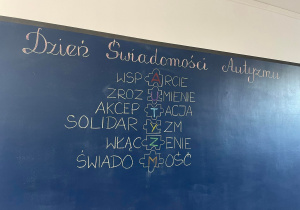 Dzień Świadomości Autyzmu
WSPARCIE
ZROZUMIENIE
AKCEPTACJA
SOLIDARYZM
WŁĄCZENIE
ŚWIADOMOŚĆ